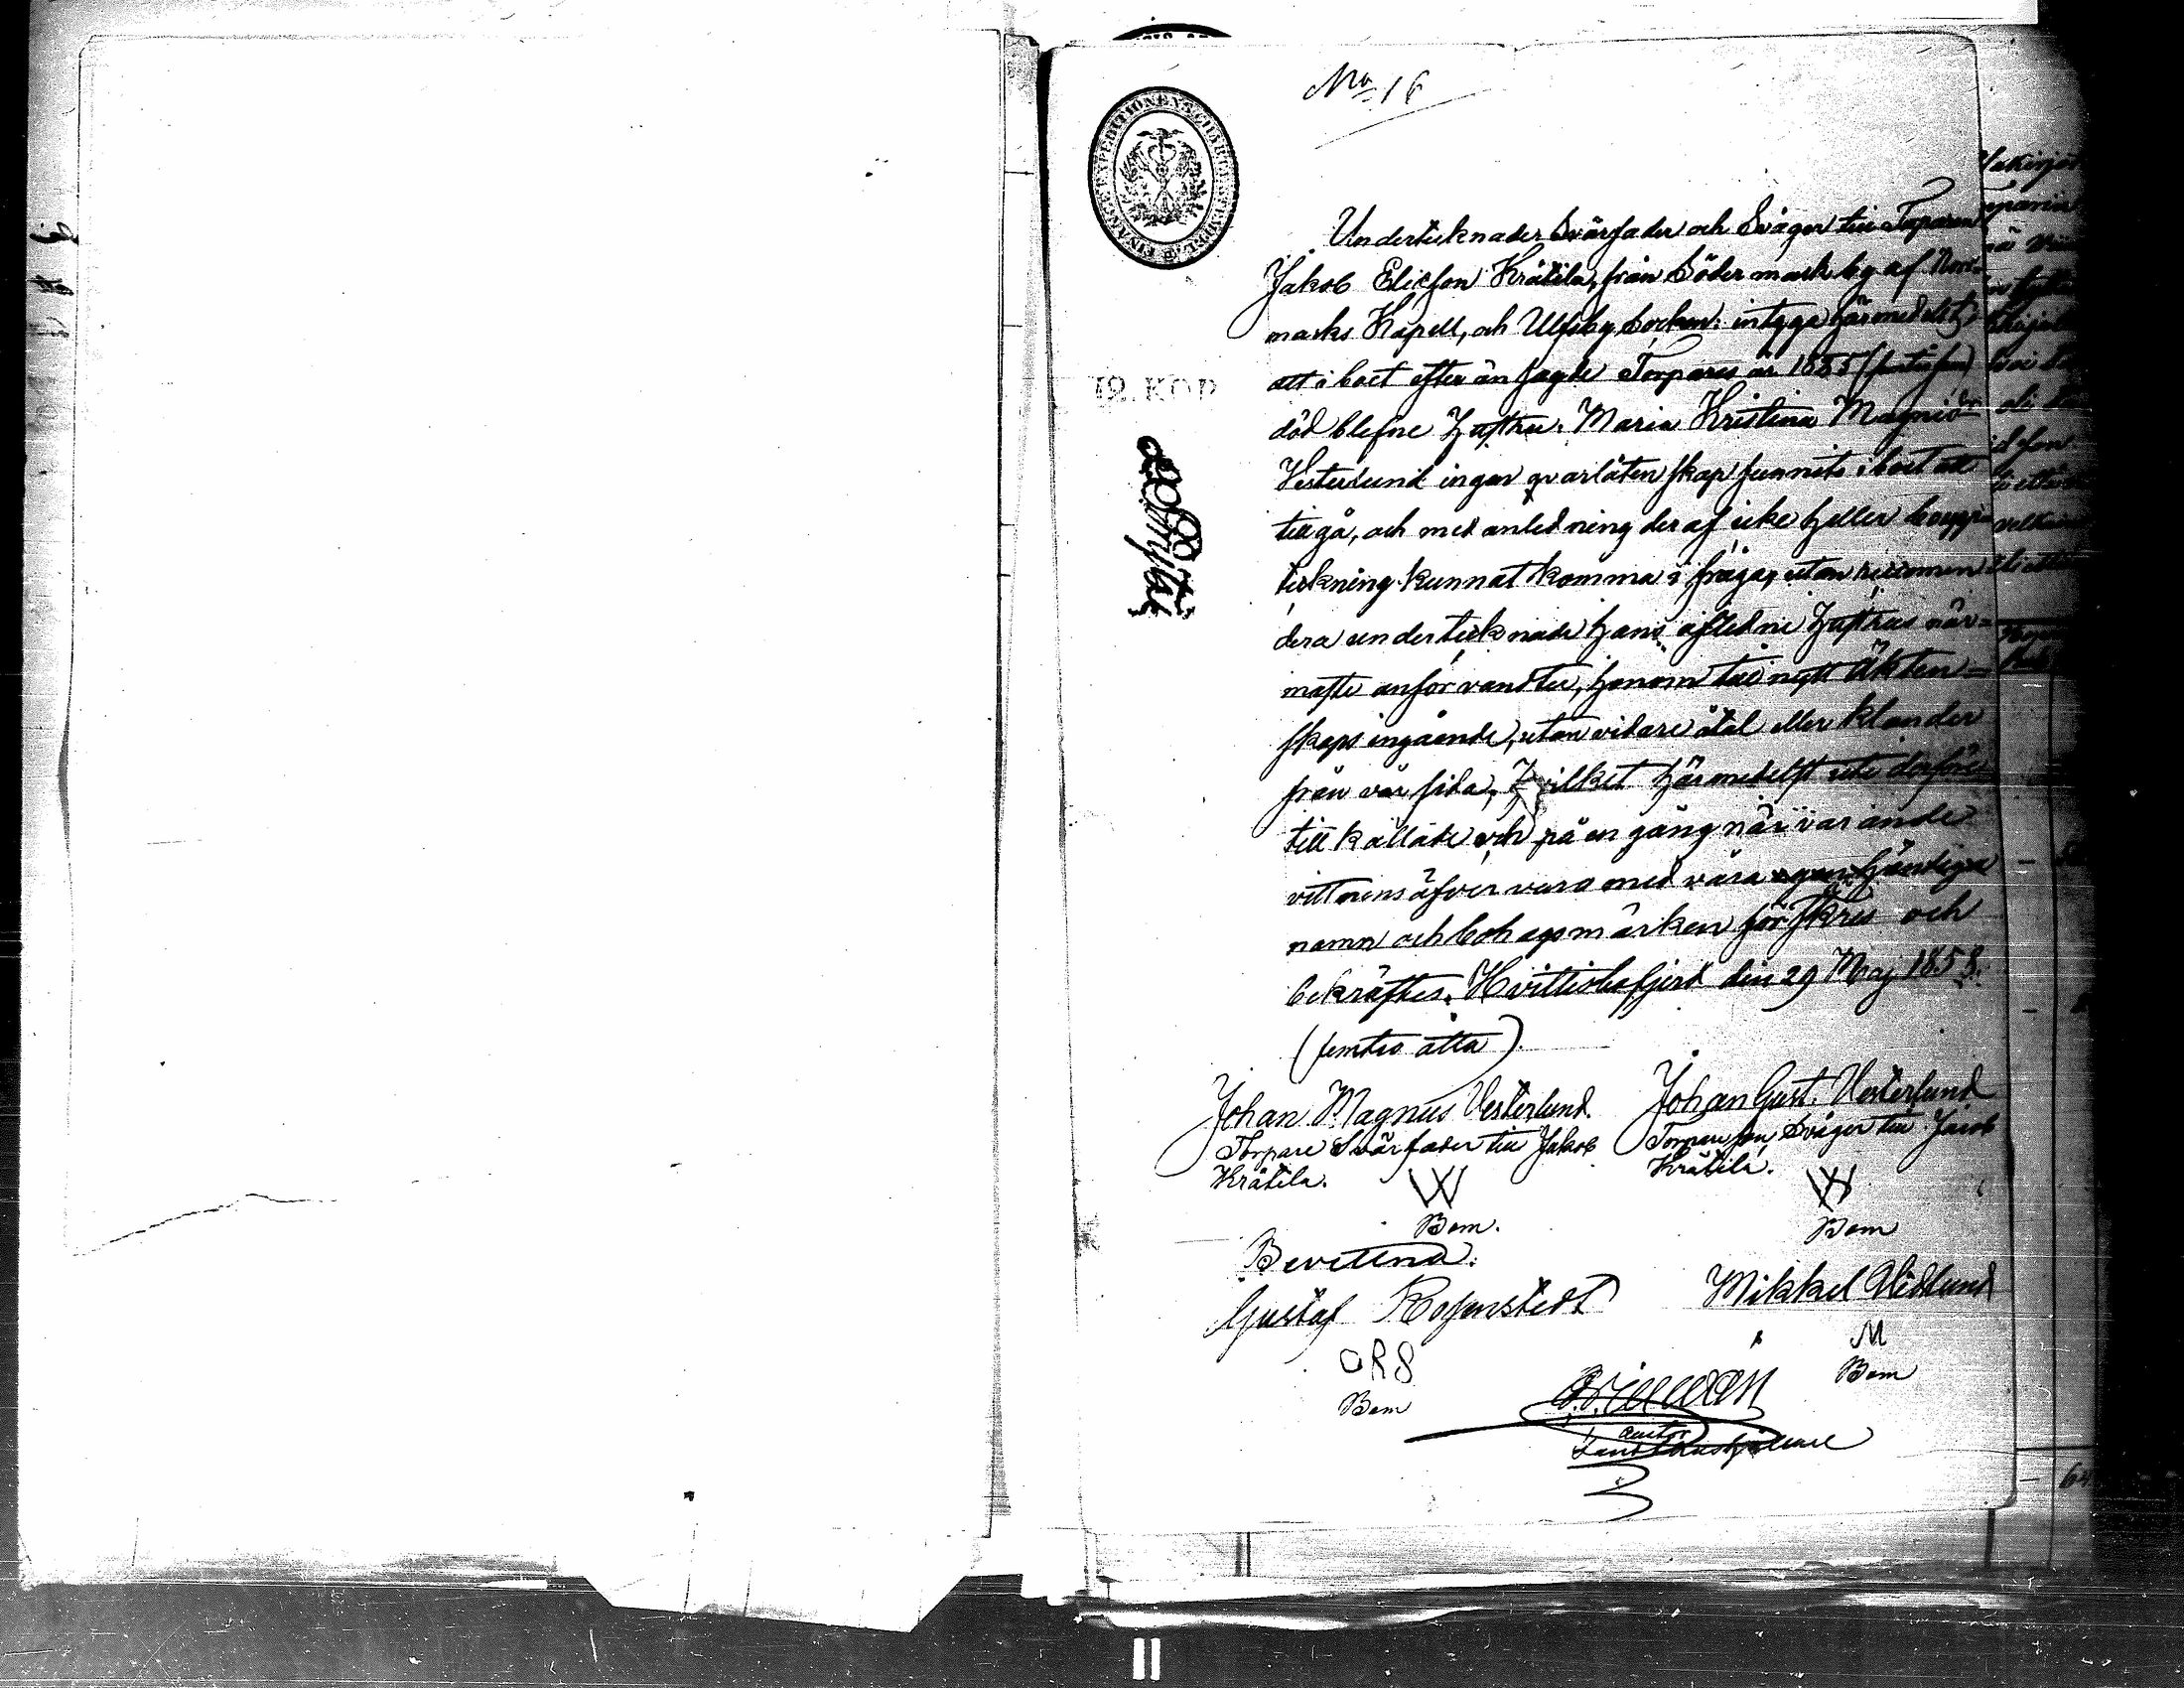 No 16
FINANCE EXPEDITIONENS CHARTÆ STEMPEL
12. KOP
Undertecknader Svärfader och Svåger till Torparen
Jakob Elicson Krätilä, från Södermark by af Norr-
marks Kapell, och Ulfsby Socken: intyga härmedelst,
att i boet efter än sagde Torpares år 1855 (femtifem)
död blefne hustru Maria Kristina Magnidr
Vesterlund ingen qvarlåtenskap funnits i boet att
tillgå, och med anledning deraf icke heller bouppte
teckning kunnat komma i fråga, utan
dera undertecknade hans afledne hustrus när-
maste anförvandter, honom till nytt Äkten-
skaps ingående, utan vidare åtal eller klander
från vår sida, Hvilket härmedelst
till kallade och på en gång när varande
vittnens öfver varo med våra egenhändiga
namn och bohagsmärken för skres och
bekräftes. Hvittisbofjerd den 29 Maj 1858.
(femtio åtta)
Johan Magnus Vesterlund.
Torpare Svärfader till Jakob
Krätilä.
W
Bom.
Johan Gust. Vesterlund
Torpareson, Svåger till Jacob
Krätilä.
W
Bom
Bevittna:
Gustaf Rosenstedt
GRS
Bom
Mikkel Vidlund
M
Bom